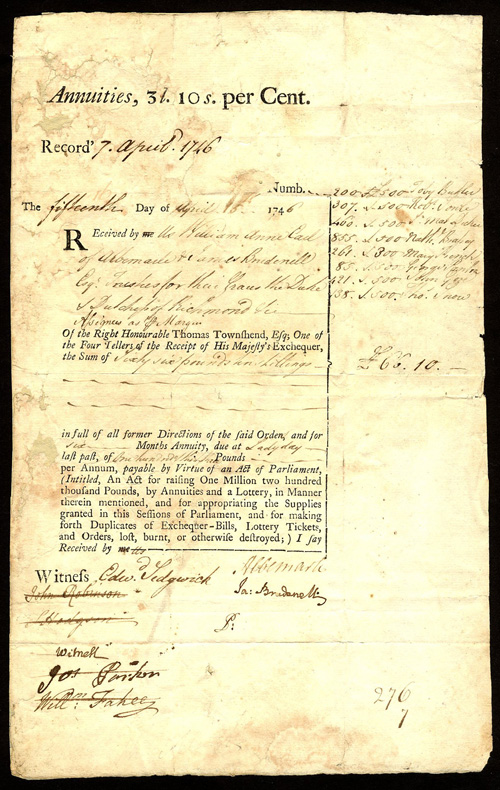 Annuities, 3l. 10s. per Cent.
Record' 7. April 1746
Numb.
The fifteenth Day of April 1746
REceived by me We William Anne Earl
of Albemarle & James Brudenell
Esqr. for their Graces the Duke
& Dutchess of Richmond
Assignees as p Margin
Of the Right Honourable Thomas Townshend, Esq; One of
the Four Tellers of the Receipt of His Majesty's Exchequer,
the Sum of Sixty six pounds ten shillings
in full of all former Directions of the said Order, and for
six Months Annuity, due at Ladyday
last past, of Pounds
per Annum, payable by Virtue of an Act of Parliament,
(Intitled, An Act for raising One Million two hundred
thousand Pounds, by Annuities and a Lottery, in Manner
therein mentioned, and for appropriating the Supplies
granted in this Sessions of Parliament, and for making
forth Duplicates of Exchequer-Bills, Lottery Tickets,
and Orders, lost, burnt, or otherwise destroyed;) I say
Received by me Us
200 £500
307. £500
460. £500
855. £500
261. £800 Mary
85. £500 George
421. £500 John
138. £500
£66.10.—
Witness Edwd. Sedgwick
John Robinson
Albemarle
Ja: Brudenell
P:
Witness
Jos Parton
Willm. Fahee
276
7